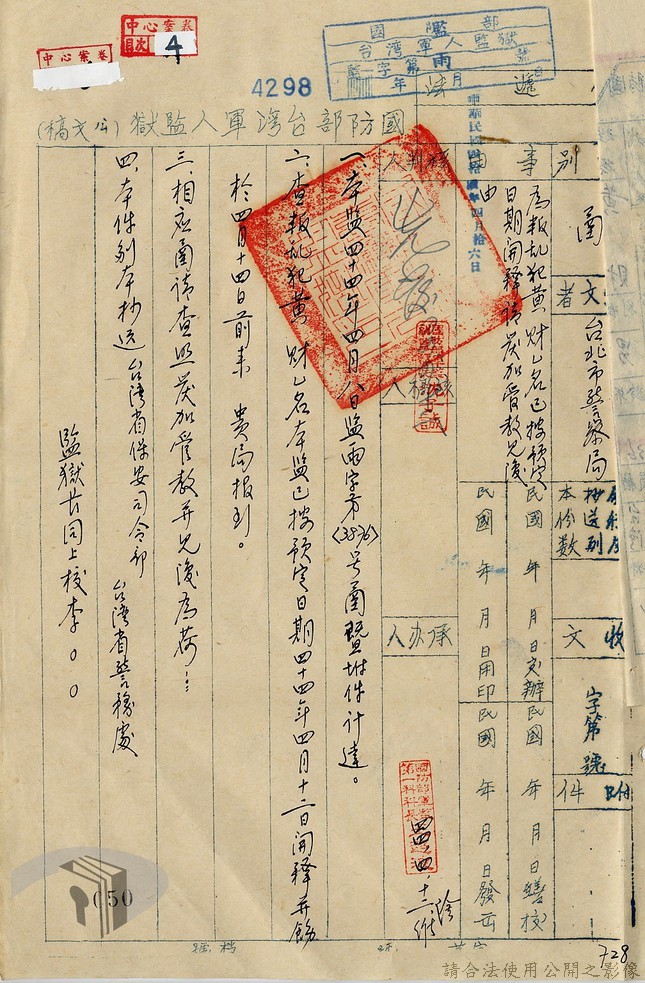 中心案卷
目次 4
中心案卷
國防部
台灣軍人監獄
4298
國防部台灣軍人監獄(公文稿)
別
函
文者
台北市警察局
事由
為叛乱犯黃 財乙名已按預定
日期開釋請嚴加管教見復
中華民國四拾肆年四月拾六日
抄送副本份數
收文
字第 號
附件
民國 年 月 日交辦
民國 年 月 日繕校
民國 年 月 日用印
民國 年 月 日發出
核判人
核稿人
承办人
一、本监四十四年四月八日监雨字第(3876)号函暨附件计達。
二、查叛乱犯黃 財乙名本监已按預定日期四十四年四月十二日開釋并飭
於四月十四日前来 貴局报到。
三、相应函請查照嚴加管教并見復為荷…
四、本件副本抄送台灣省保安司令部 台灣省警務處
监獄长同上校李○○
050
728
請合法使用公開之影像